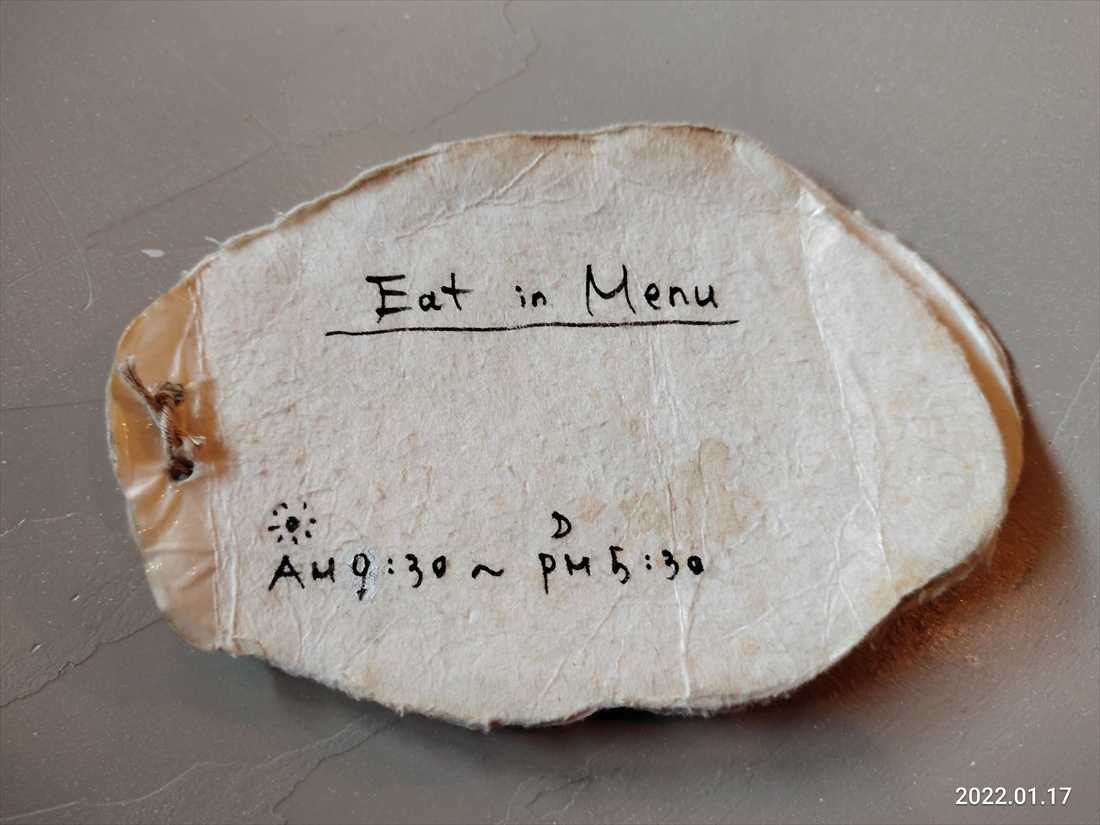 Eat in Menu
AM 9:30 ~ PM 5:30
2022.01.17